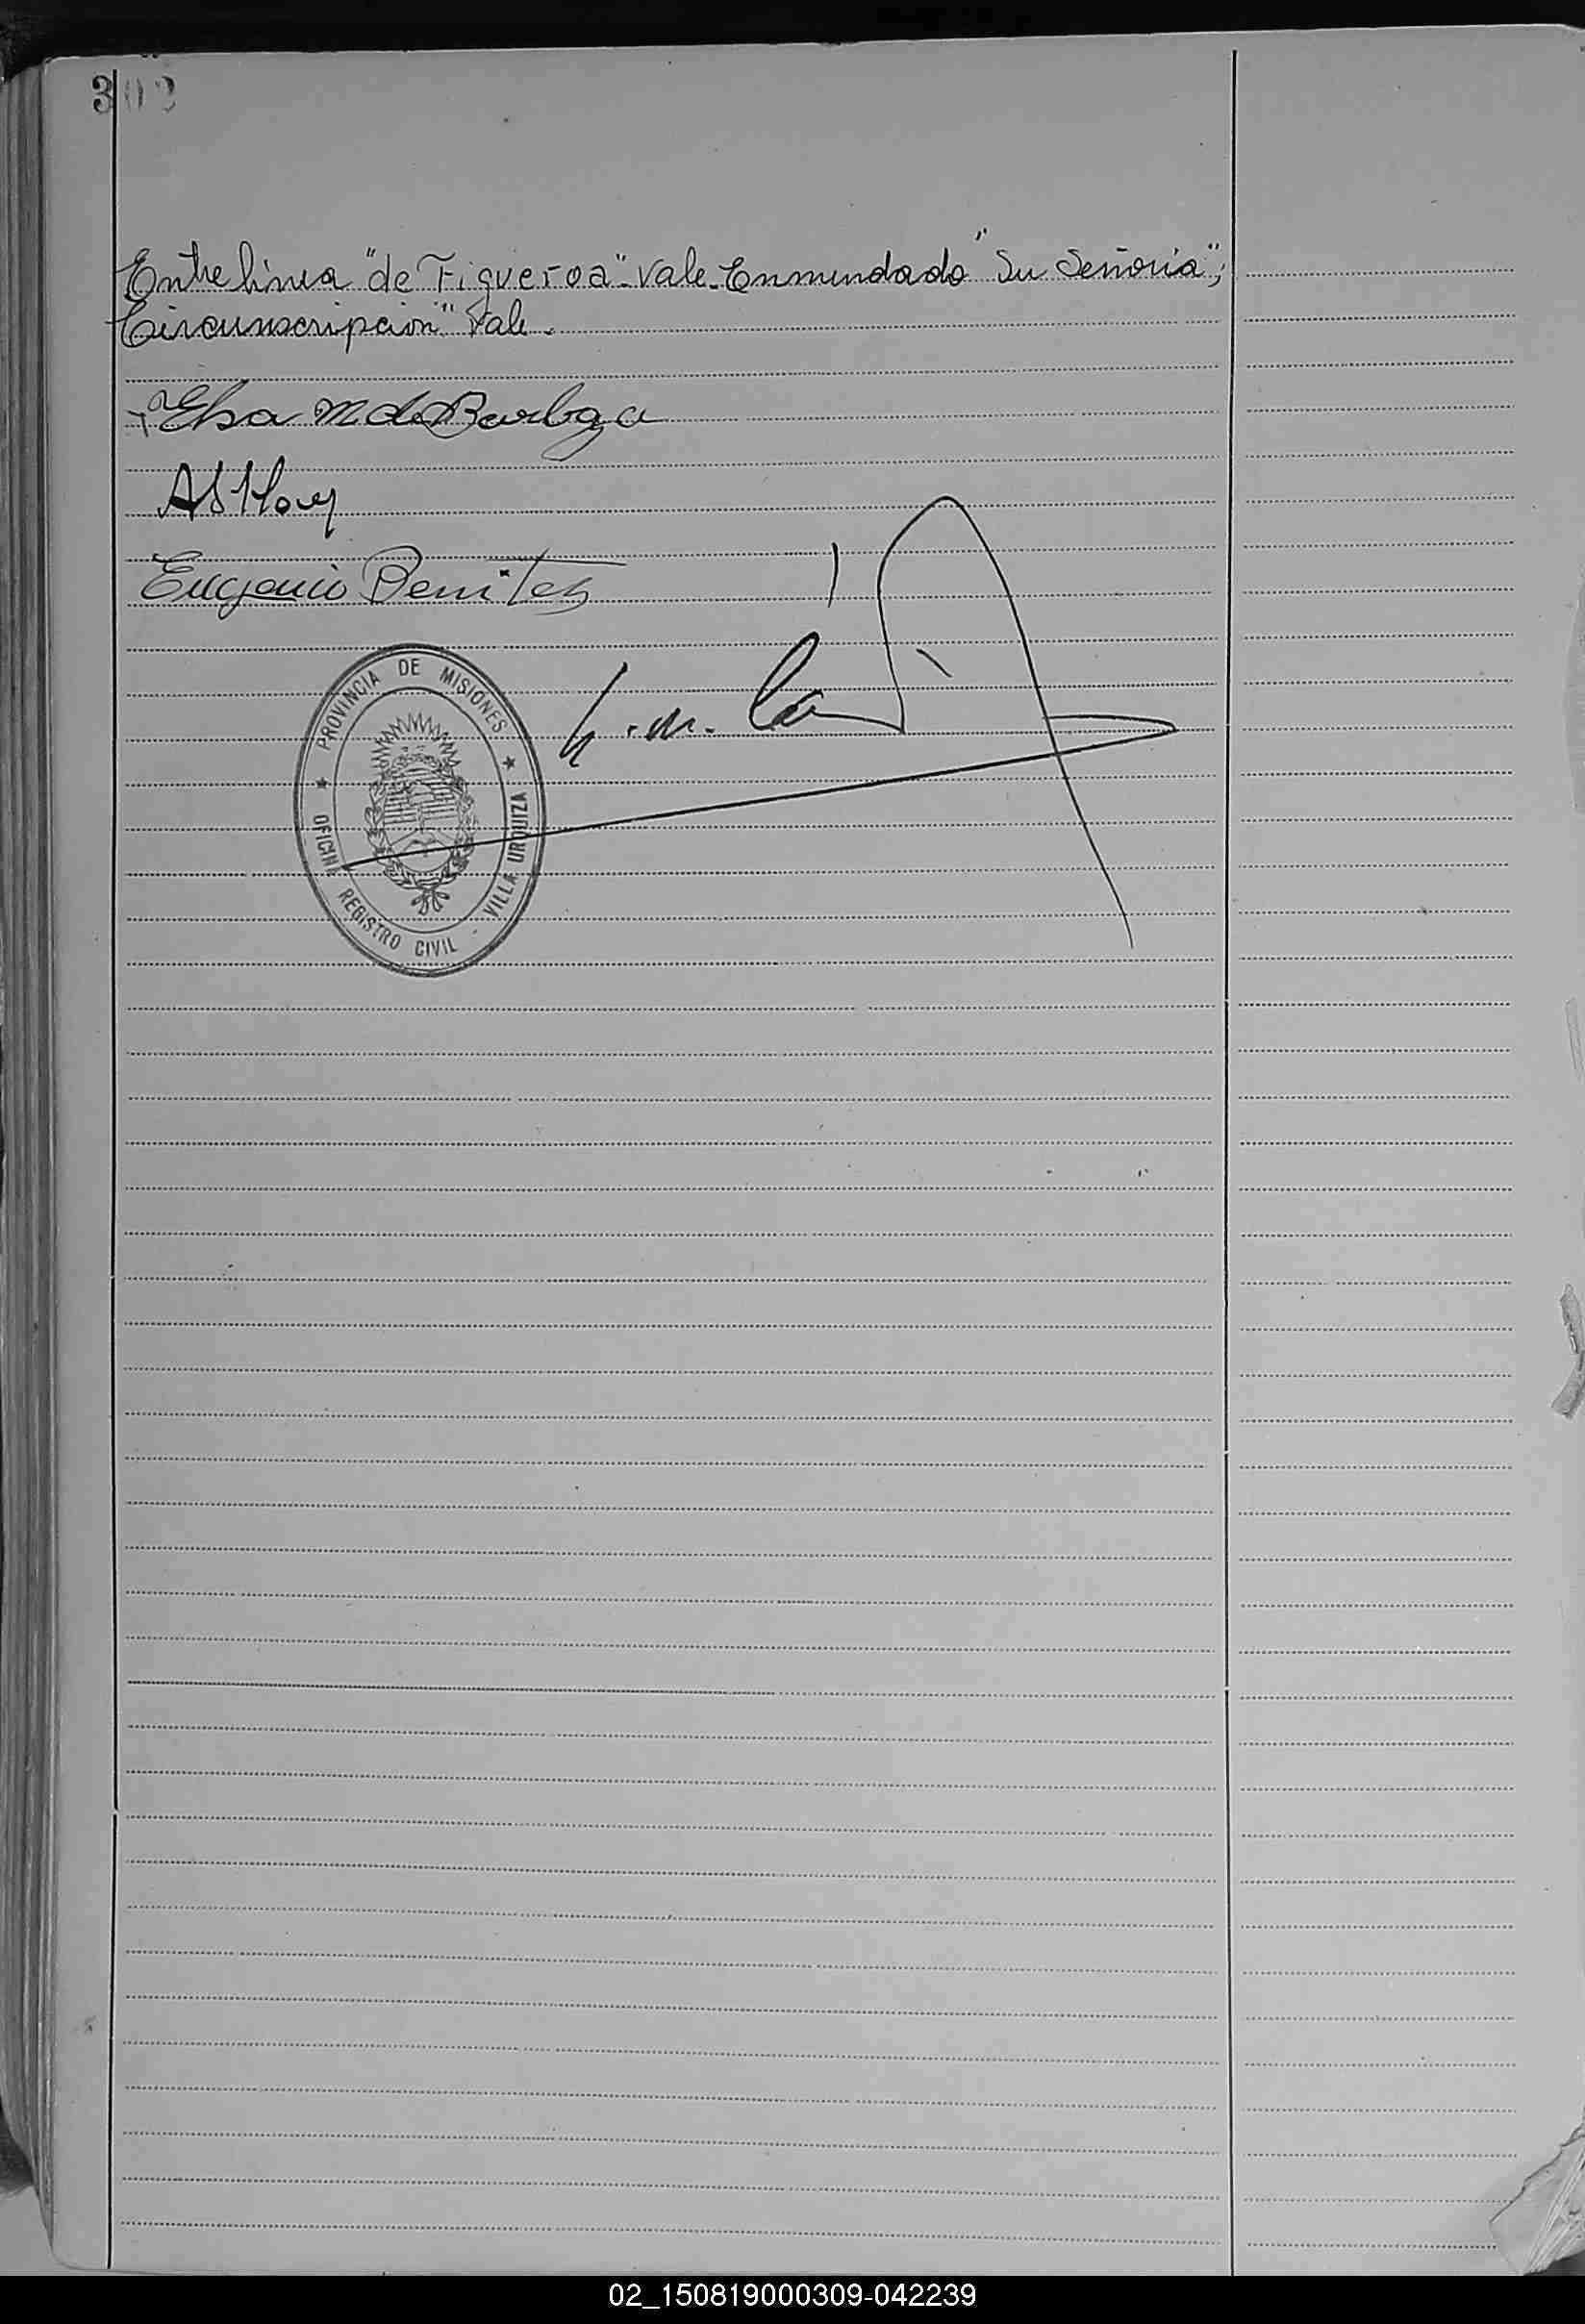 302
Entre línea "de Figueroa" - Vale - Enmendado "Su Señoria";
Circunscripción" Vale.
Elsa M de Barboza
Eugenio Benitez
PROVINCIA DE MISIONES
OFICINA REGISTRO CIVIL - VILLA URQUIZA
02_150819000309-042239